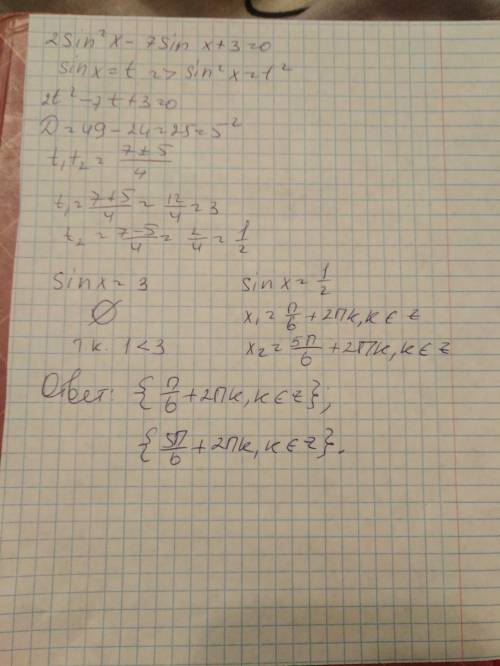 2sin²x - 7sin x + 3 = 0
sin x = t => sin²x = t²
2t² - 7t + 3 = 0
D = 49 - 24 = 25 = 5²
t₁t₂ = (7±5)/4
t₁ = (7+5)/4 = 12/4 = 3
t₂ = (7-5)/4 = 2/4 = 1/2
sin x = 3    sin x = 1/2
∅    x₁ = π/6 + 2πk, k ∈ z
т.к. 1 < 3    x₂ = 5π/6 + 2πk, k ∈ z
Ответ: {π/6 + 2πk, k ∈ z};
{5π/6 + 2πk, k ∈ z}.